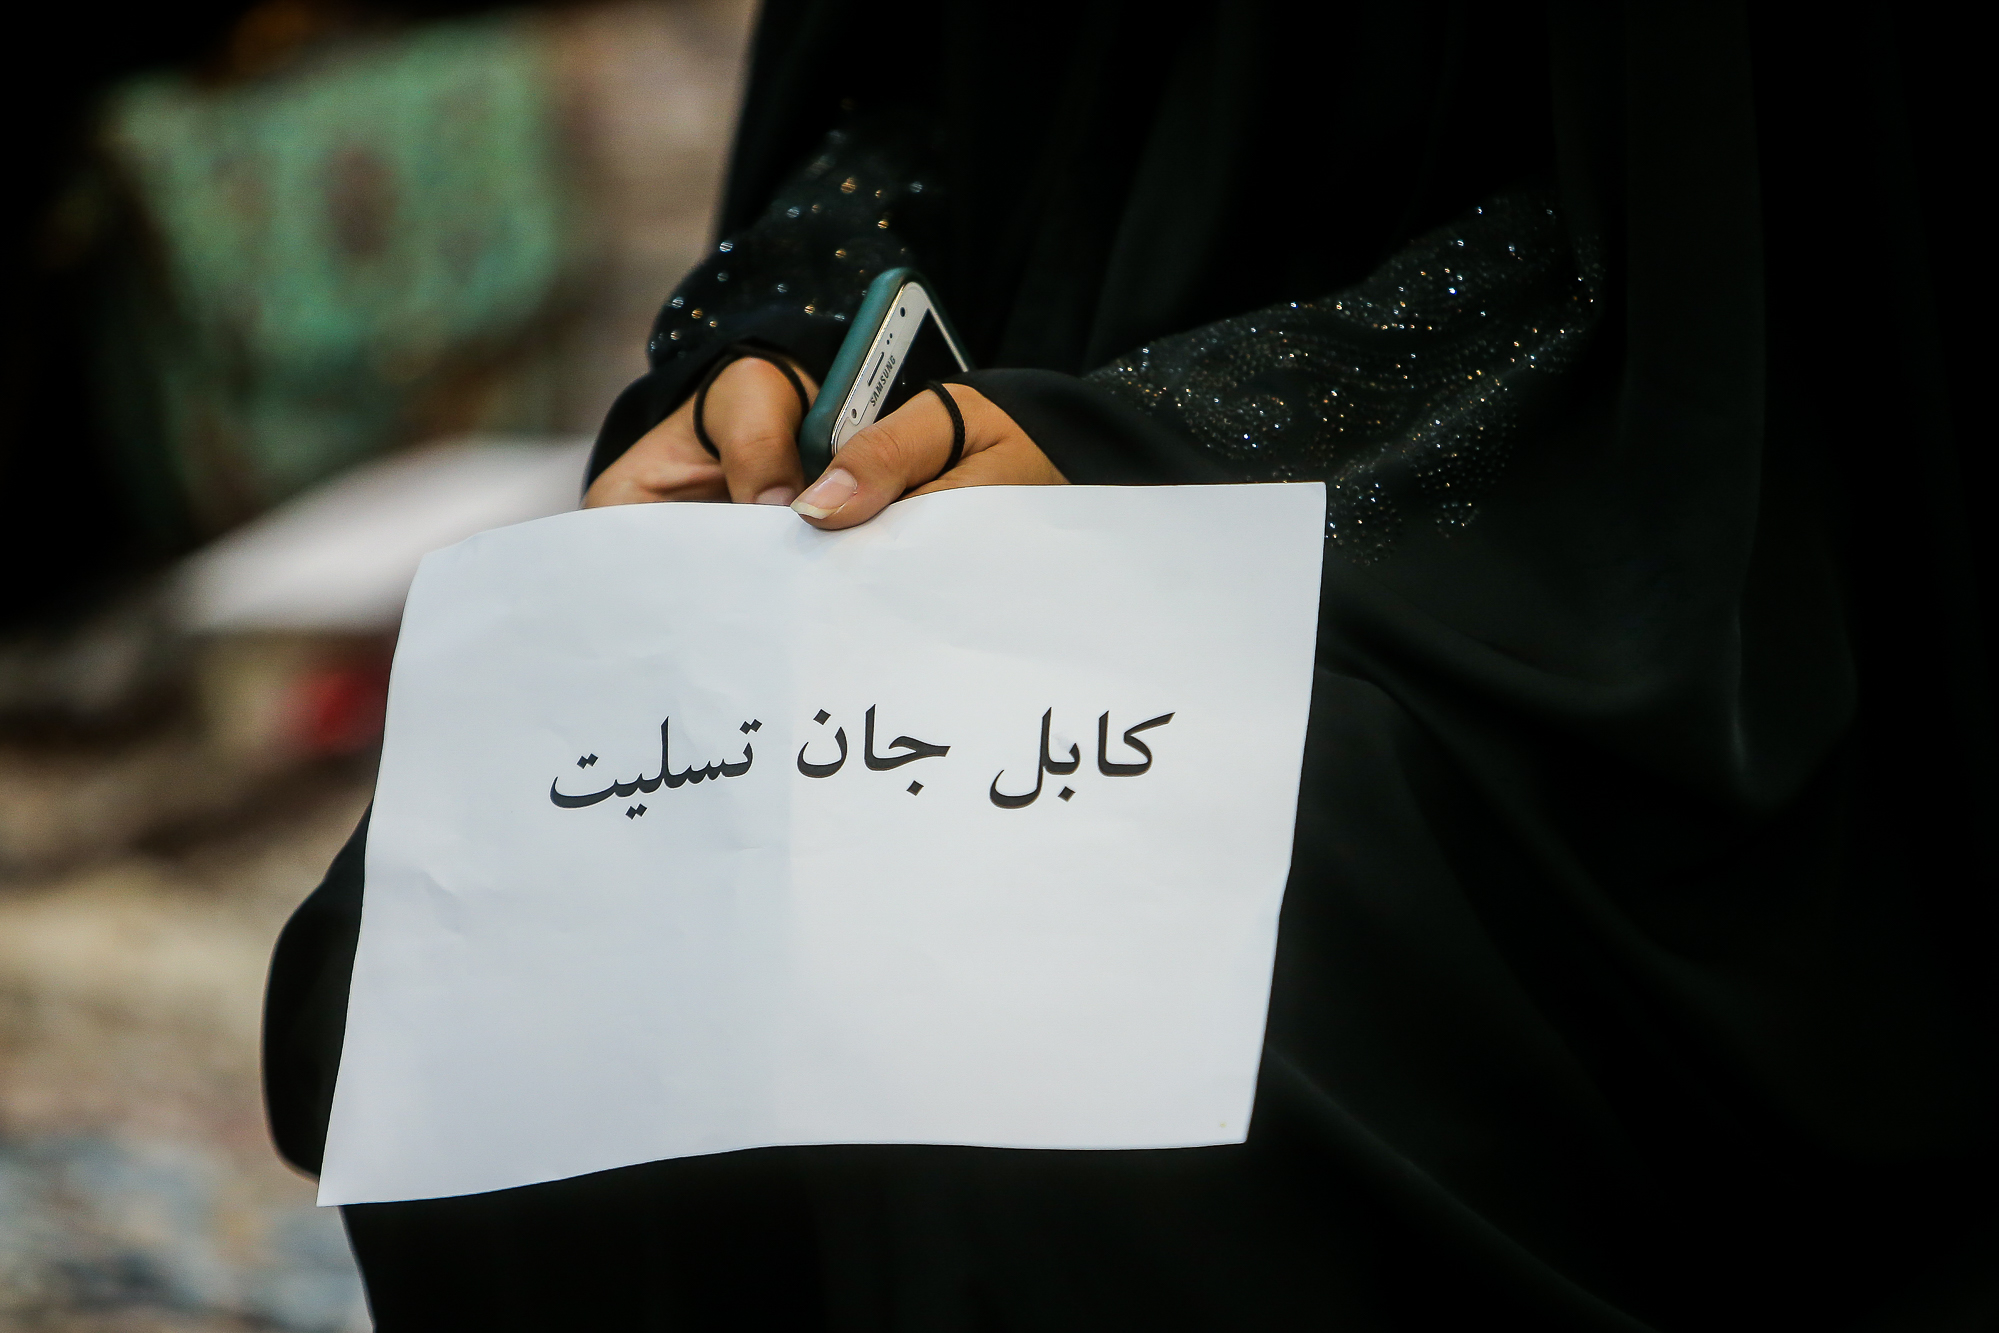 SAMSUNG
کابل جان تسلیت